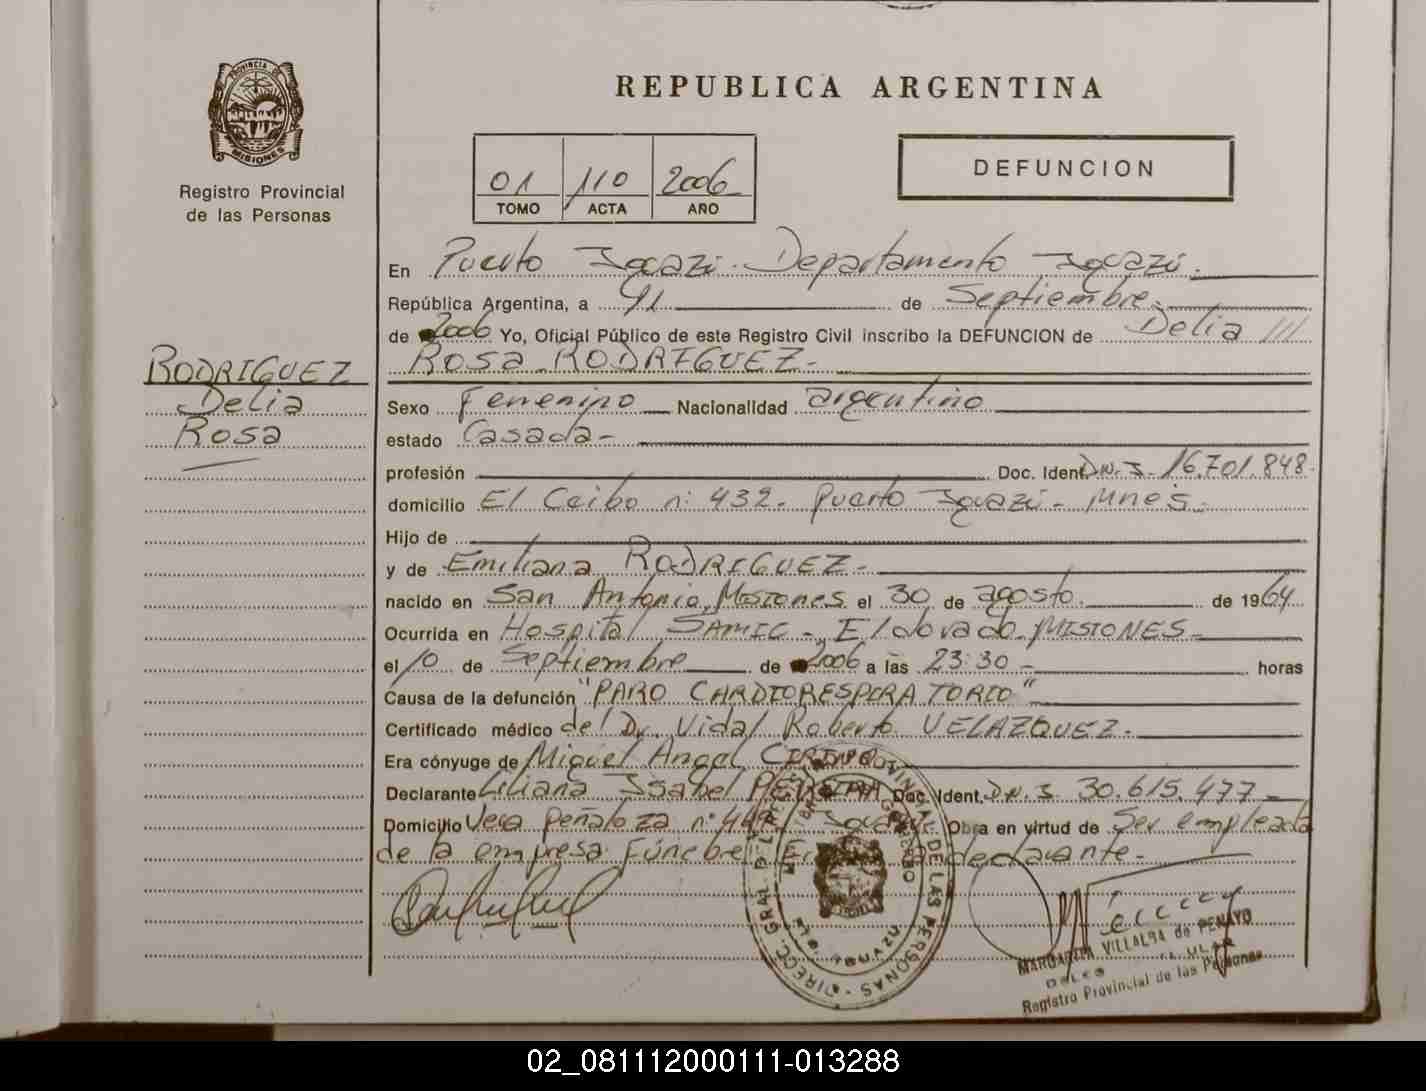 PROVINCIA DE
MISIONES
Registro Provincial
de las Personas
REPUBLICA ARGENTINA
01 110 2006
TOMO ACTA AÑO
DEFUNCION
En Puerto Iguazú. Departamento Iguazú.
República Argentina, a 11 de Septiembre
de 2006 Yo, Oficial Público de este Registro Civil inscribo la DEFUNCION de Delia
Rosa RODRIGUEZ-
RODRIGUEZ
Delia
Rosa
Sexo Femenino Nacionalidad argentino
estado Casada-
profesión Doc. Ident. D.N.I. 16.701.848-
domicilio El Ceibo n: 432- Puerto Iguazú- Mnes-
Hijo de
y de Emiliana RODRIGUEZ-
nacido en San Antonio, Misiones el 30 de agosto de 1964
Ocurrida en Hospital SAMIC - Eldorado-MISIONES-
el 10 de Septiembre de 2006 a las 23:30- horas
Causa de la defunción "PARO CARDIORESPIRATORIO"
Certificado médico del Dr. Vidal Roberto VELAZQUEZ-
Era cónyuge de Miguel Angel
Declarante Liliana Isabel Doc. Ident. D.N.I 30.615.477-
Domicilio Vera Peñaloza n° Iguazú- Obra en virtud de Ser empleada
de la empresa Fúnebre declarante-
DIRECC. GRAL. DEL REG. PROVINCIAL DE LAS PERSONAS
PTO. IGUAZU
MARGARITA VILLALBA de PENAYO
Registro Provincial de las Personas
02_081112000111-013288